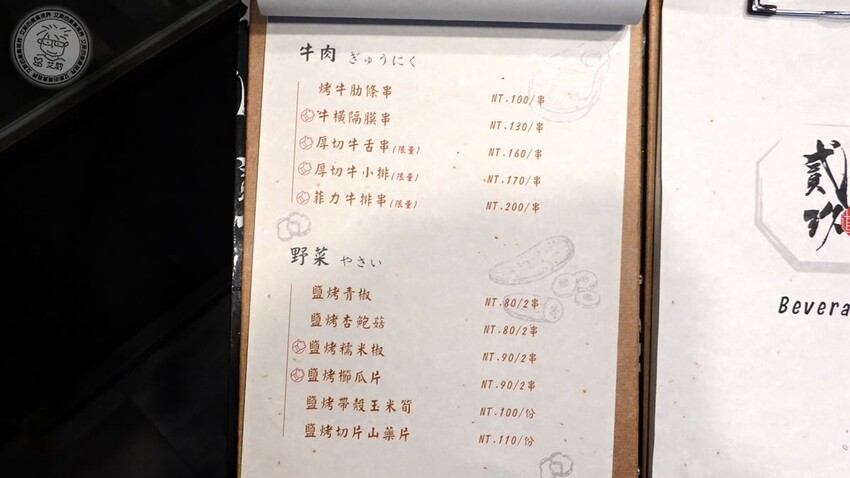 牛肉 ぎゅうにく
烤牛肋條串 NT.100/串
牛橫隔膜串 NT.130/串
厚切牛舌串(限量) NT.160/串
厚切牛小排(限量) NT.170/串
菲力牛排串(限量) NT.200/串
野菜 やさい
鹽烤青椒 NT.80/2串
鹽烤杏鮑菇 NT.80/2串
鹽烤糯米椒 NT.90/2串
鹽烤櫛瓜片 NT.90/2串
鹽烤帶殼玉米筍 NT.100/份
鹽烤切片山藥片 NT.110/份
貳玖
Bevera